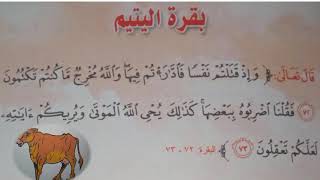 بقرة اليتيم
قَالَ تَعَالَى: ﴿ وَإِذْ قَتَلْتُمْ نَفْسًا فَادَّارَأْتُمْ فِيهَا وَاللَّهُ مُخْرِجٌ مَا كُنْتُمْ تَكْتُمُونَ
﴿٧٢﴾ فَقُلْنَا اضْرِبُوهُ بِبَعْضِهَا كَذَلِكَ يُحْيِ اللَّهُ الْمَوْتَى وَيُرِيكُمْ ءَايَتِهِ
لَعَلَّكُمْ تَعْقِلُونَ ﴿٧٣﴾ ﴾ البقرة: ٧٢ - ٧٣